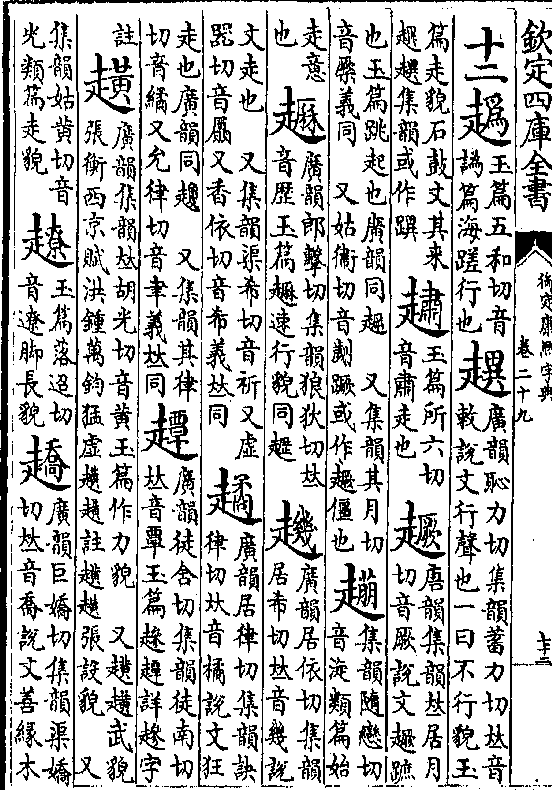 欽定四庫全書
御定康熙字典
卷二十九
七十二
十二 䞼 玉篇五和切音
譌篇海蹉行也 趩 廣韻恥力切集韻蓄力切𠀤音
敕說文行聲也一曰不行貌玉
篇走貌石鼓文其來
趩趩集韻或作䠱 𧽷 玉篇所六切
音肅走也 趰 唐韻集韻𠀤居月
切音厥說文趰蹠
也玉篇跳起也廣韻同趉 又集韻其月切
音橜義同 又姑衞切音劌蹶或作趰僵也 𧽼 集韻隨戀切
音漩類篇始
走意
也 𧽻 廣韻郎擊切集韻狼狄切𠀤
音歷玉篇𧽻速行貌同𧻲 𧽸 廣韻居依切集韻
居希切𠀤音幾說
文走也 又集韻渠希切音祈又虛
器切音屭又香依切音希義𠀤同 趫 廣韻居律切集韻訣
律切𠀤音橘說文狂
走也廣韻同趫 又集韻其律
切音繘又允律切音聿義𠀤同 𧾍 廣韻徒含切集韻徒南切
𠀤音覃玉篇趁𧾍詳趁字
註 趪 廣韻集韻𠀤胡光切音黃玉篇作力貌 又趪趪武貌
張衡西京賦洪鍾萬鈞猛虛趪趪註趪趪張設貌 又
集韻姑黃切音
光類篇走貌 𧽽 玉篇落迢切
音遼脚長貌 趫 廣韻巨嬌切集韻渠嬌
切𠀤音喬說文善緣木